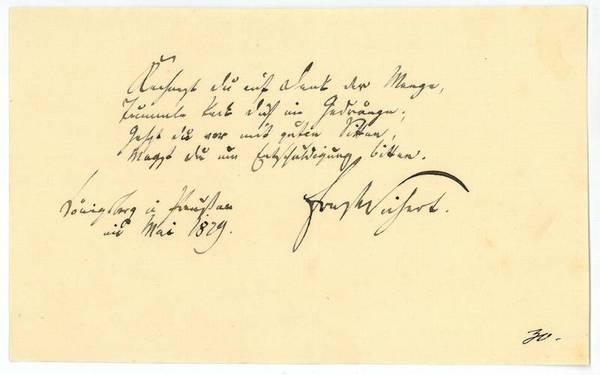 Verzagst du auf Dank der Menge,
Tummle keck dich im Gedränge;
Gehst du vor mit guten Sitten,
Magst du um Entschuldigung bitten.
Königsberg in Preußen
im Mai 1879.
Ernst Wichert.
30.-